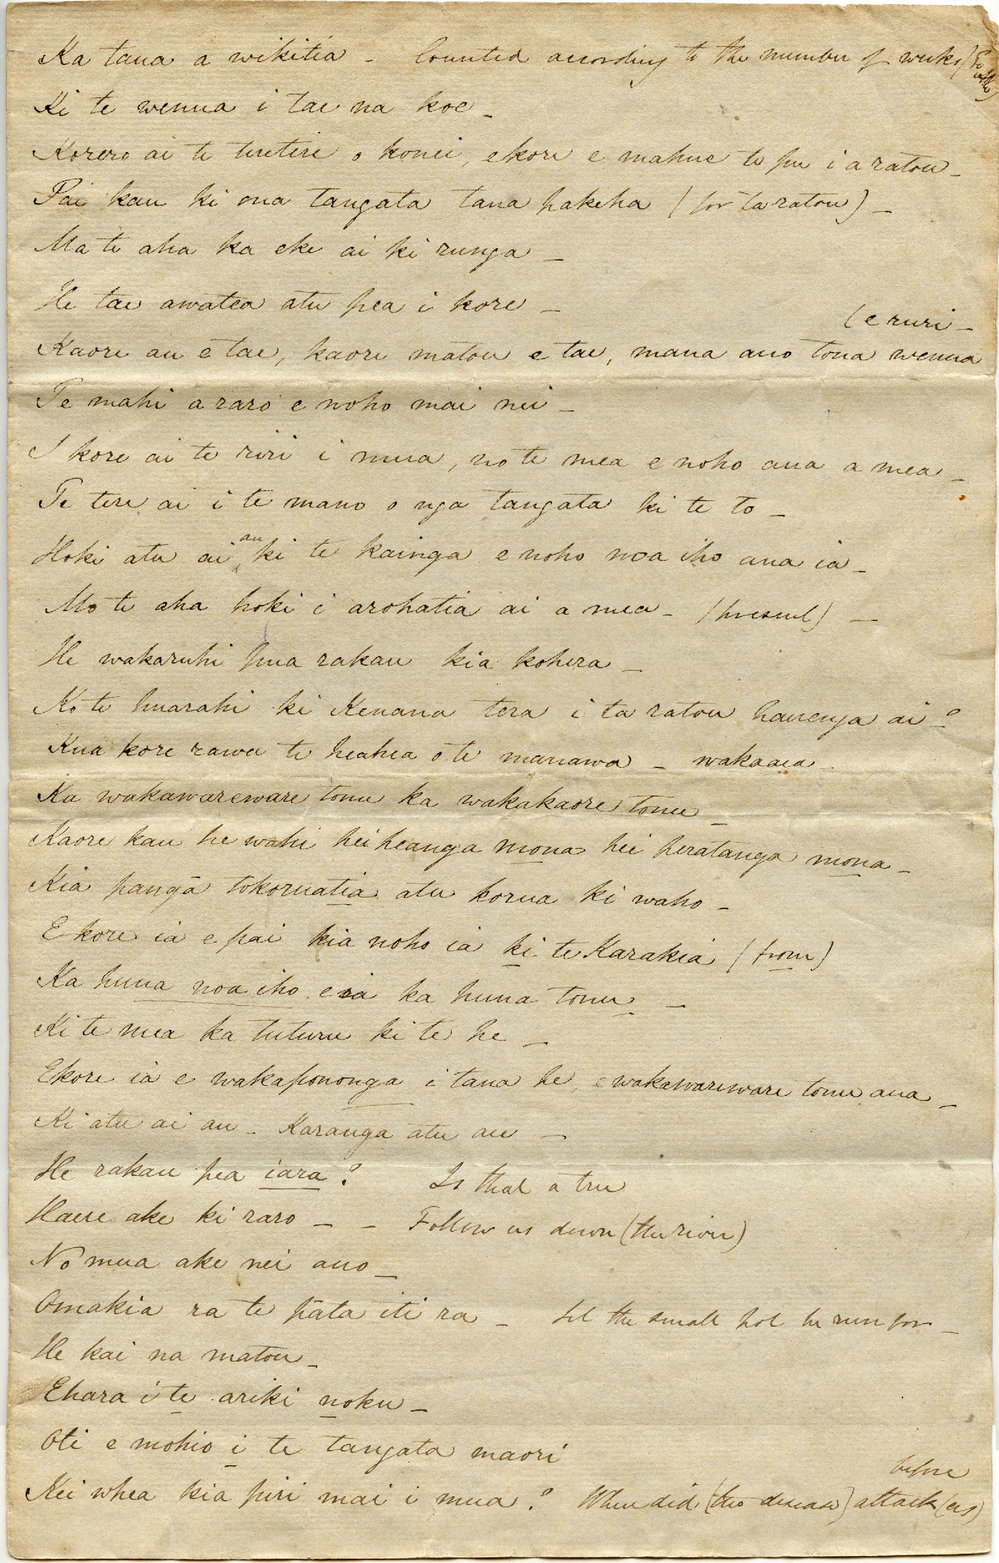 Ka taua a wikitia - Counted according to the number of weeks
Ki te wenua i tae na koe -
Korero ai te tiretire o konei, ekore e mahue te pu i a ratou -
Pai kau ki ona tangata tana pakeha (for ta ratou) -
Ma te aha ka eke ai ki runga -
He tae awatea atu pea i kore -
(e ruri -
Kaore au e tae, kaore matou e tae, mana ano tona wenua
Te mahi a raro e noho mai nei -
I kore ai te riri i mua, no te mea e noho ana a mea -
Te tere ai i te mano o nga tangata ki te to -
Hoki atu ai au ki te kainga e noho noa iho ana ia -
Mo te aha hoki i arohatia ai a mea - (present) -
He wakaruhi hua rakau kia kohera -
Ko te huarahi ki Kenana tera i ta ratou haerenga ai - ?
Kua kore rawa te heahea o te manawa - wakaaea
Ka wakawareware tonu ka wakakaore tonu -
Kaore kau he wahi hei heanga mona hei peratanga mona -
Kia panga tokoruatia atu korua ki waho -
E kore ia e pai kia noho ia ki te Karakia (from)
Ka huna noa iho e ia ka huna tonu -
Ki te mea ka tuturu ki te he -
Ekore ia e wakapononga i tana he, e wakawareware tonu ana -
Ki atu ai au - Karanga atu au -
He rakau pea iara? Is that a tree
Haere ake ki raro - - Follow us down (the river)
No mua ake nei ano -
Omakia ra te pata iti ra - Let the small pot be run for -
He kai na matou -
Ehara i te ariki noku -
Oti e mohio i te tangata maori
before
Kei whea kia piri mai i mua? When did (the disease) attack (us)